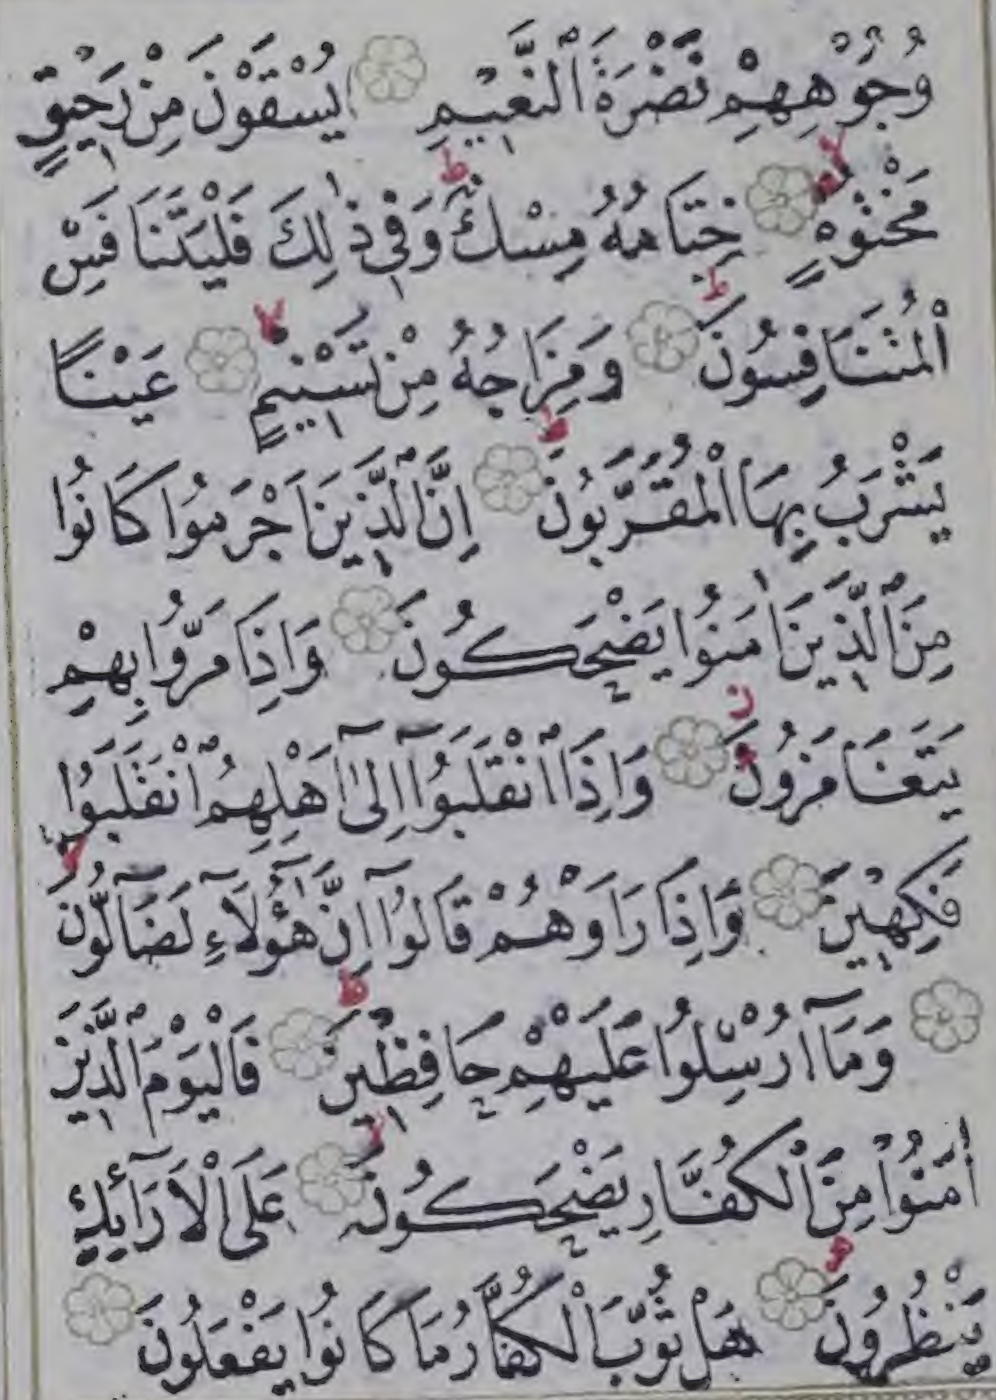 وُجُوهِهِمْ نَضْرَةَ ٱلنَّعِيمِ يُسْقَوْنَ مِنْ رَحِيقٍ
مَخْتُومٍ خِتَامُهُ مِسْكٌ وَفِي ذٰلِكَ فَلْيَتَنَافَسِ
ٱلْمُتَنَافِسُونَ وَمِزَاجُهُ مِنْ تَسْنِيمٍ عَيْنًا
يَشْرَبُ بِهَا ٱلْمُقَرَّبُونَ اِنَّ ٱلَّذِينَ اَجْرَمُوا كَانُوا
مِنَ ٱلَّذِينَ اٰمَنُوا يَضْحَكُونَ وَاِذَا مَرُّوا بِهِمْ
يَتَغَامَزُونَ وَاِذَا ٱنْقَلَبُوٓا اِلٰىٓ اَهْلِهِمُ ٱنْقَلَبُوا
فَكِهِينَ وَاِذَا رَاَوْهُمْ قَالُوٓا اِنَّ هٰٓؤُلَآءِ لَضَآلُّونَ
وَمَآ اُرْسِلُوا عَلَيْهِمْ حَافِظِينَ فَالْيَوْمَ ٱلَّذِينَ
اٰمَنُوا مِنَ ٱلْكُفَّارِ يَضْحَكُونَ عَلَى ٱلْاَرَآئِكِ
يَنْظُرُونَ هَلْ ثُوِّبَ ٱلْكُفَّارُ مَا كَانُوا يَفْعَلُونَ